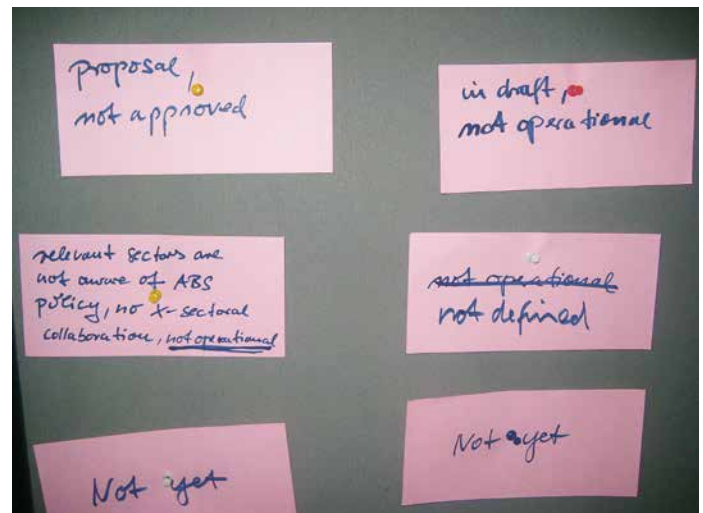 proposal,
not approved
in draft,
not operational
relevant sectors are
not aware of ABS
policy, no X-sectoral
collaboration, not operational
not operational
not defined
Not yet
Not yet